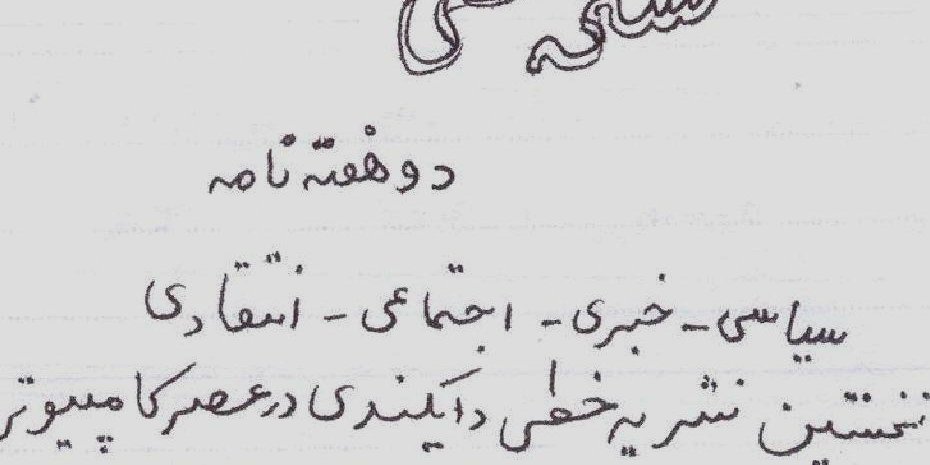 دو هفته نامه
سیاسی - خبری - اجتماعی - انتقادی
نخستین نشریه خطی دایکندی در عصر کامپیوتر